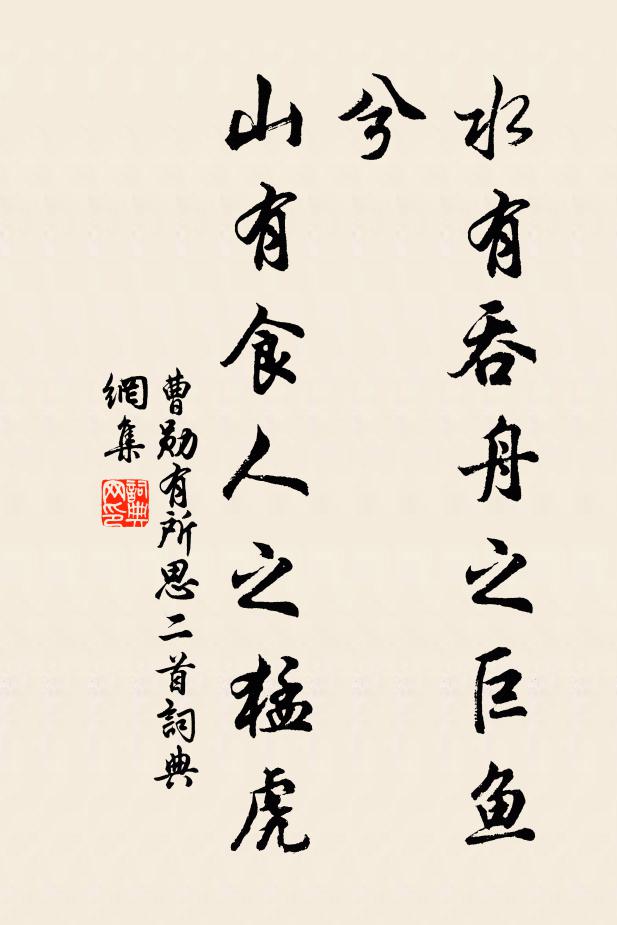 水有吞舟之巨鱼
兮
山有食人之猛虎
曹勋有所思二首詞典
網集
詞典
网印